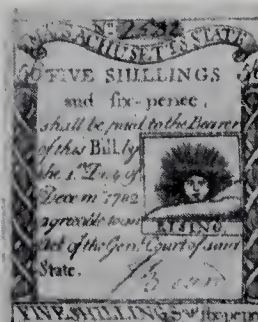 MASSACHUSETTS STATE
FIVE SHILLINGS
and six-pence,
shall be paid to the Bearer
of this Bill by
the 1st Day of
Decem 1782
agreeable to an
Act of the Genl Court of said
State.
RISING
FIVE SHILLINGS six-pence